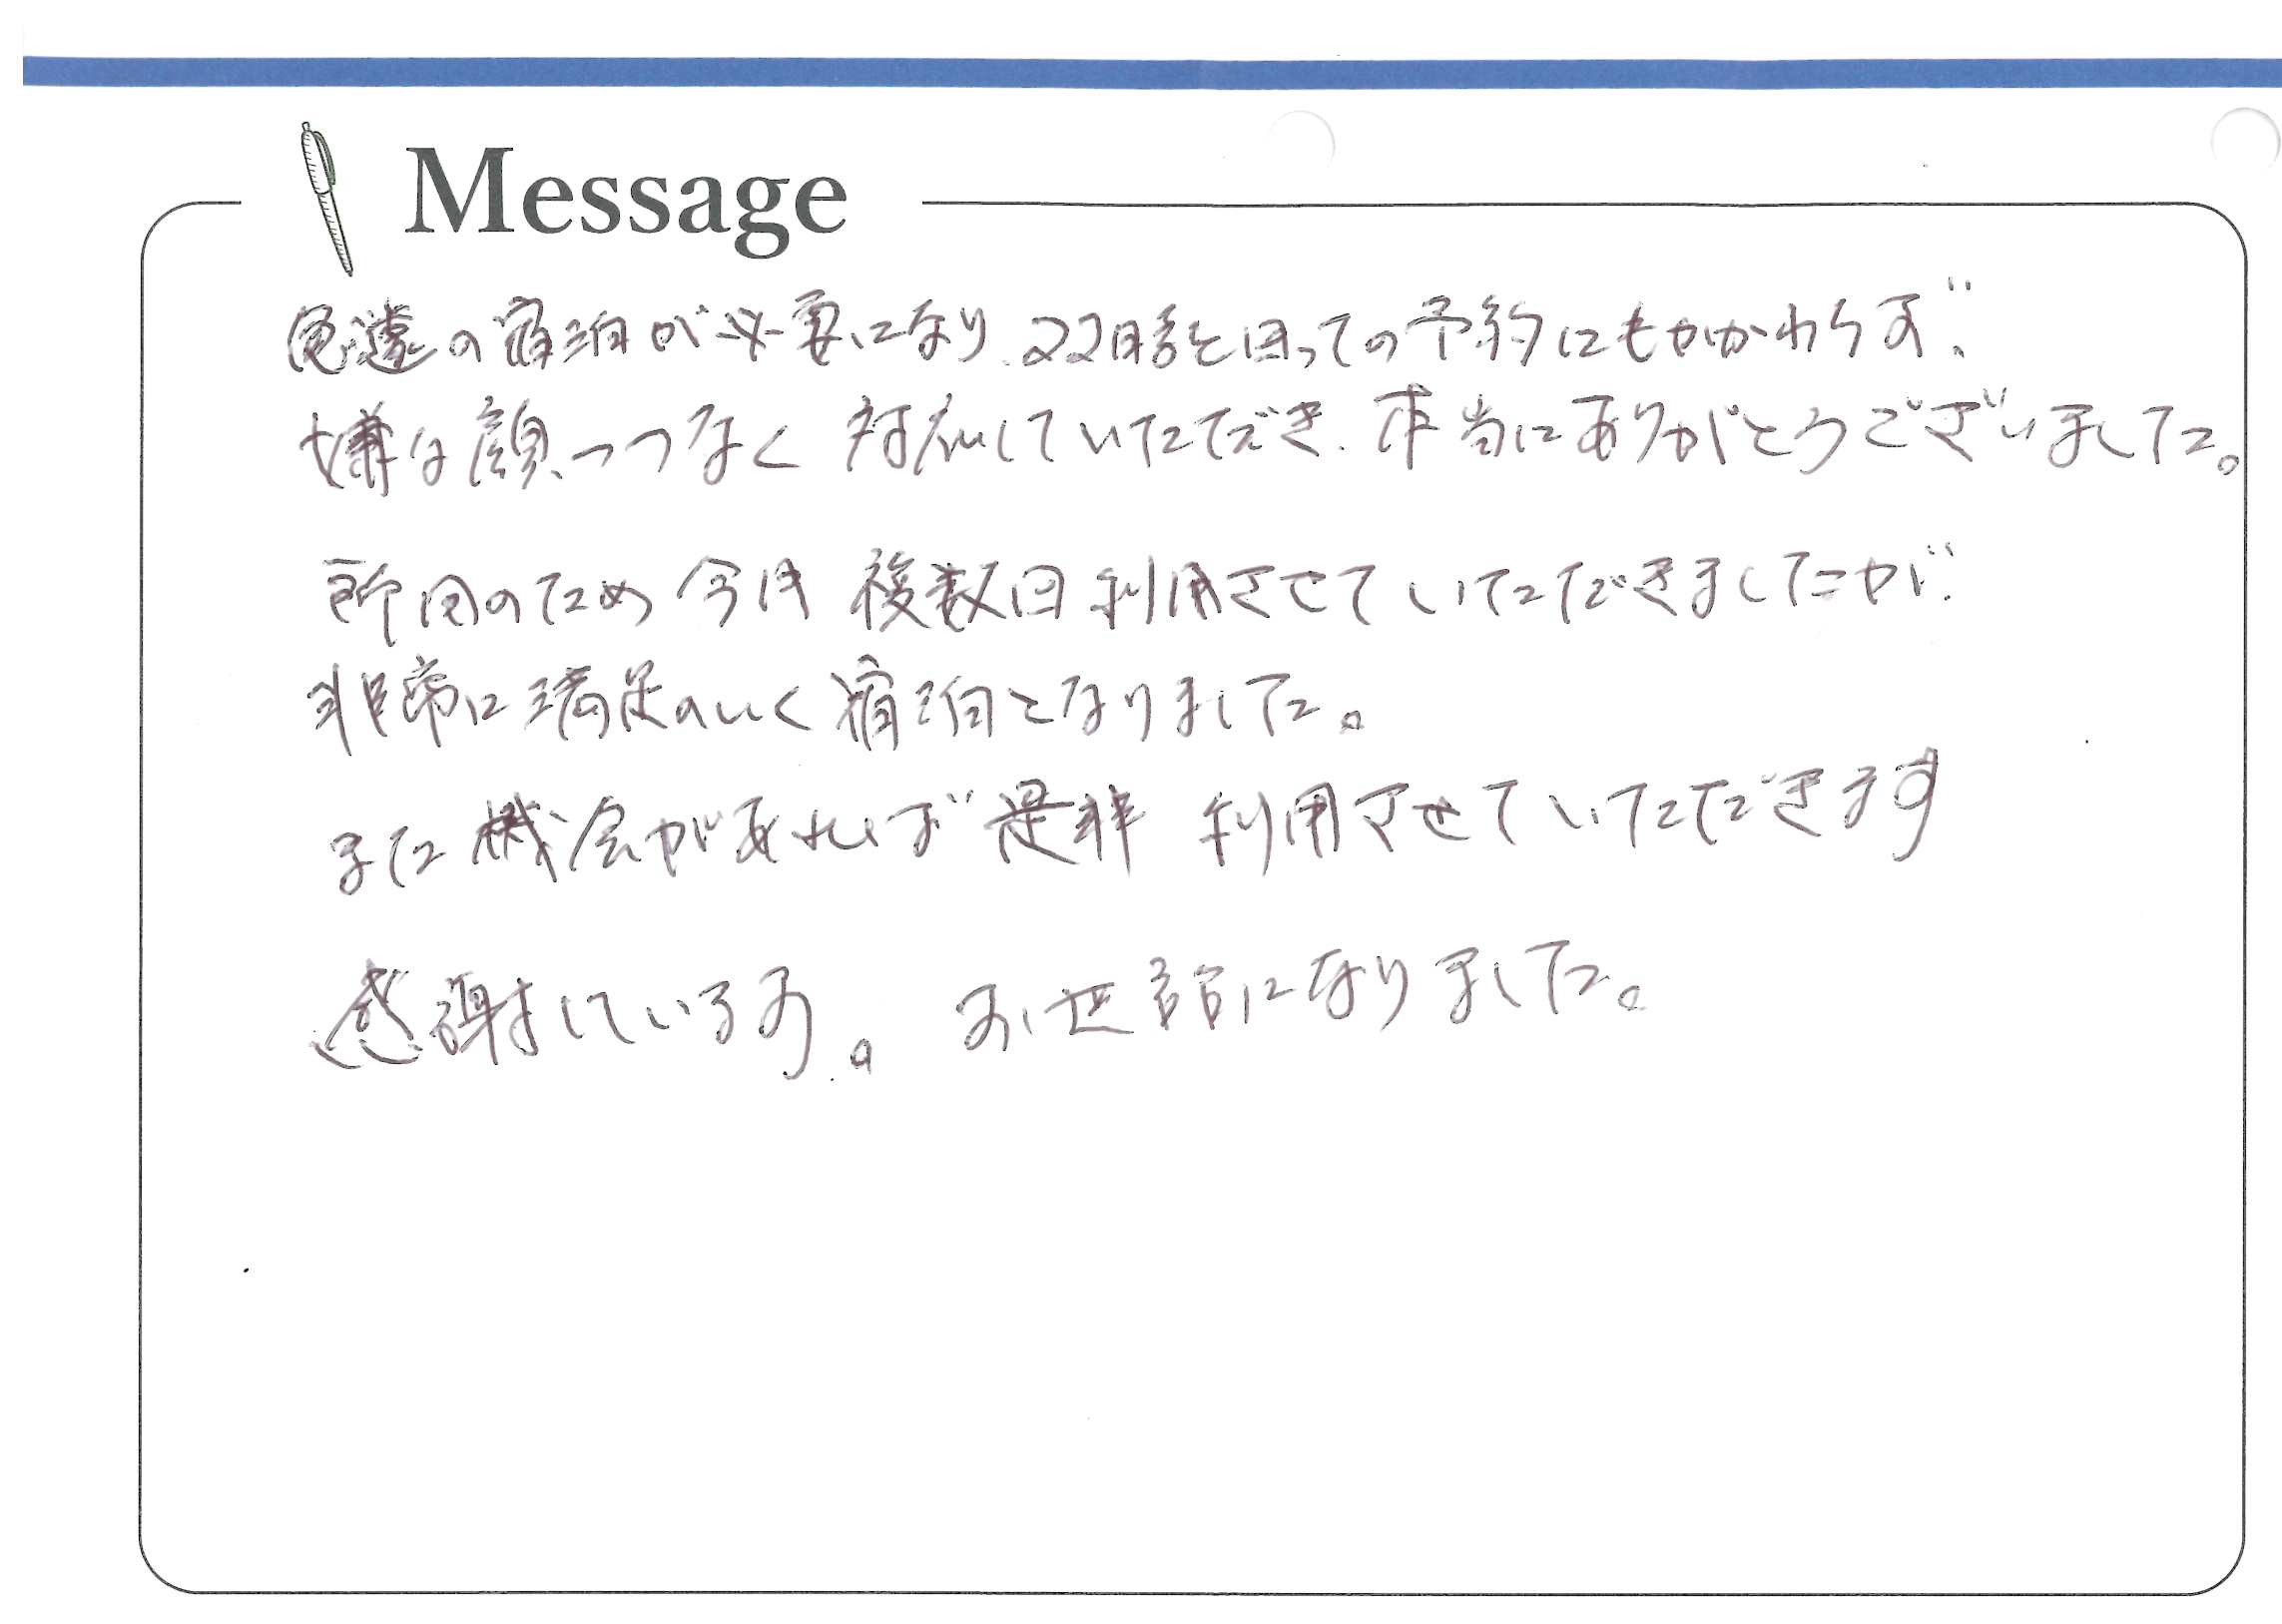 Message
急遽の宿泊が必要になり、22時を回っての予約にもかかわらず、
嫌な顔一つなく対応していただき、本当にありがとうございました。
所用のため今月複数回利用させていただきましたが、
非常に満足のいく宿泊となりました。
また機会があれば是非利用させていただきます
感謝しています。お世話になりました。